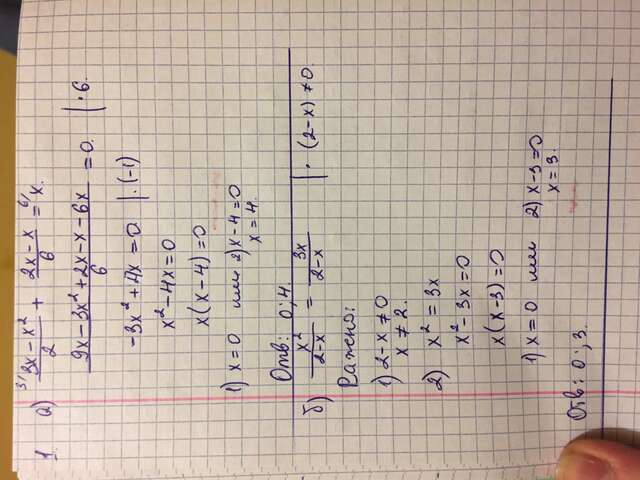 1. а) ³⁾(3x − x²)/2 + (2x − x)/6 = ⁶⁾x.
(9x − 3x² + 2x − x − 6x)/6 = 0. | · 6.
−3x² + 4x = 0 | · (−1)
x² − 4x = 0
x(x − 4) = 0
1) x = 0 или 2) x − 4 = 0
x = 4.
Отв: 0; 4.
б) x²/(2 − x) = 3x/(2 − x) | · (2 − x) ≠ 0.
Важно:
1) 2 − x ≠ 0
x ≠ 2.
2) x² = 3x
x² − 3x = 0
x(x − 3) = 0
1) x = 0 или 2) x − 3 = 0
x = 3.
Отв: 0; 3.